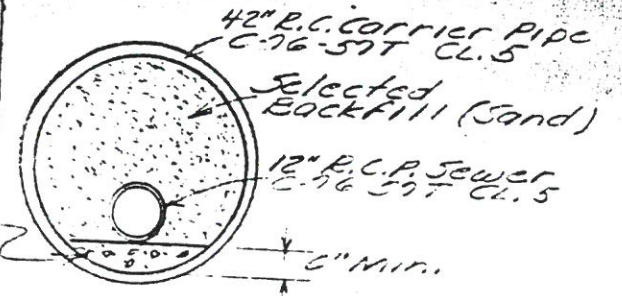 42" R.C. Carrier Pipe
C-76-57T CL.5
Selected
Backfill (Sand)
12" R.C.P. Sewer
C-76 57T CL.5
6" Min.